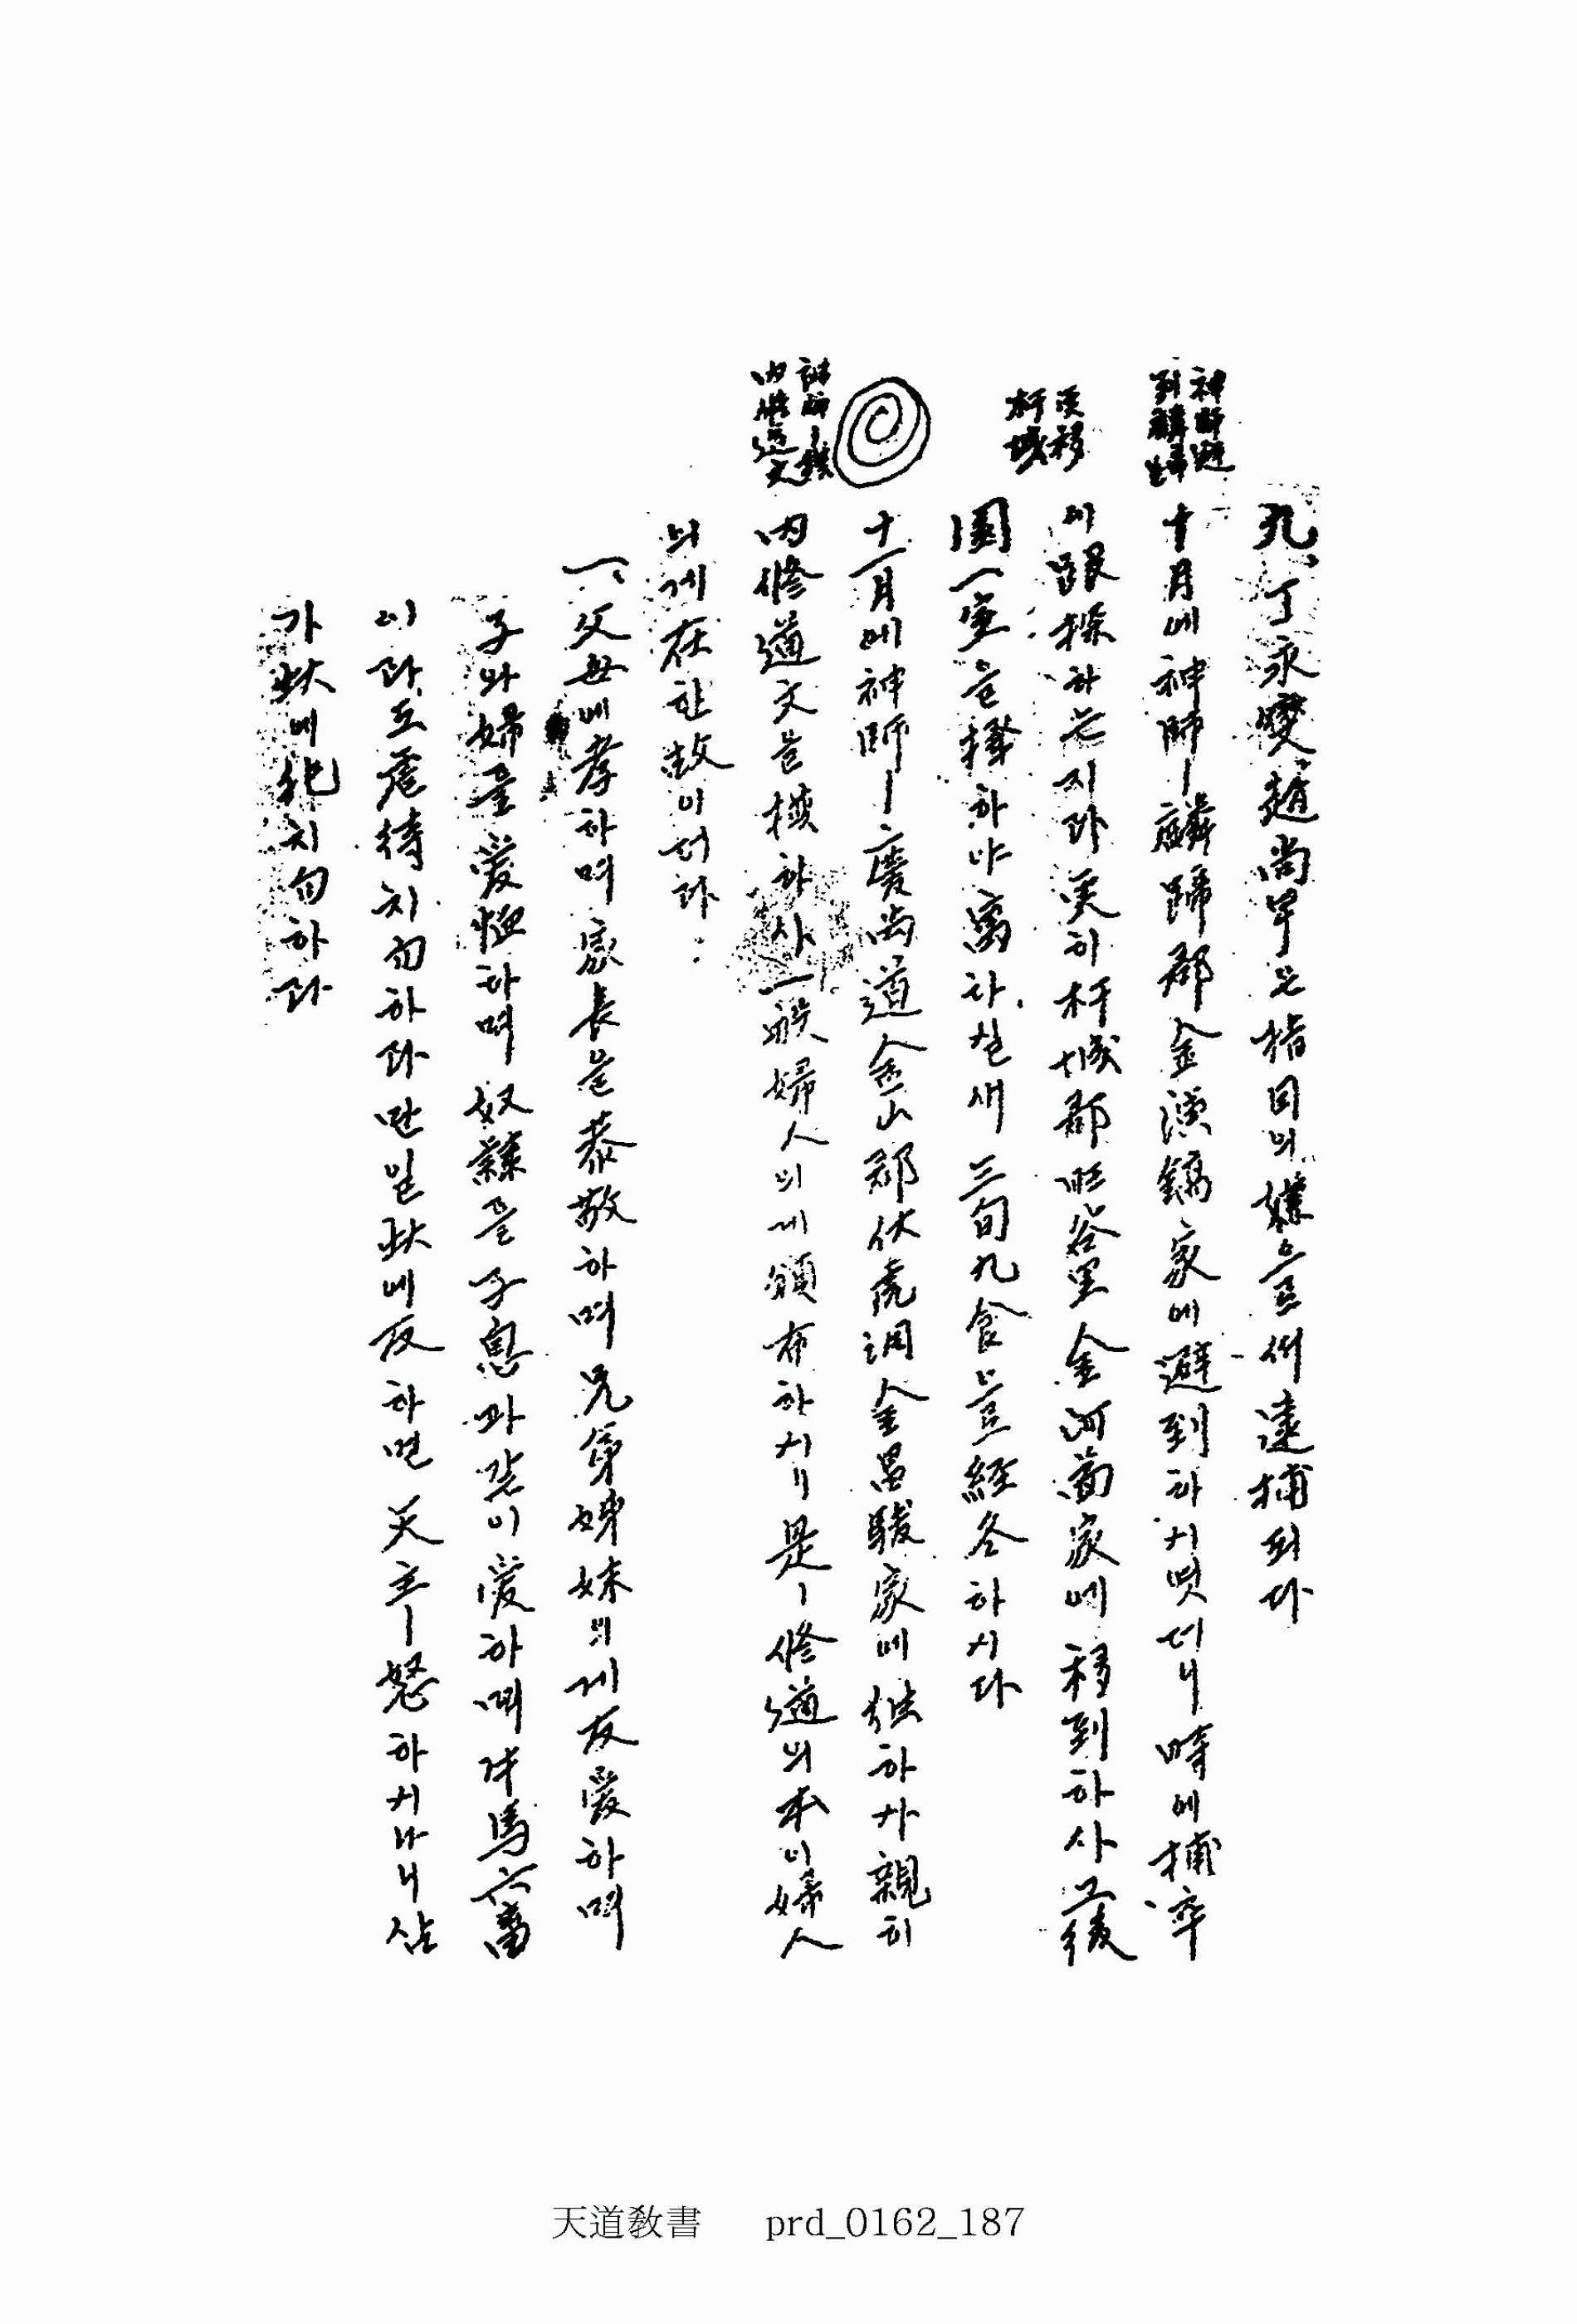 神師避
到麟蹄
十月에神師ㅣ麟蹄郡金演鎬家에避到하시엿더니時에捕卒
九、丁永燮、趙尚甲은指目의嫌으로써逮捕되다
更移
杆城
이跟探하는지라更히杆城郡旺谷里金河圖家에移到하사 그後
園一室을擇하야寓하실새三旬九食으로経冬하시다
十一月에神師ㅣ慶尚道金山郡伏虎洞金昌駿家에往하사親히
神師ㅣ撰
内修道文
内修道文을撰하사一般婦人의게頒布하시니是ㅣ修道의本이婦人
의게在한故이더라
一、父母에孝하며家長을恭敬하며兄弟姊妹의게友愛하며
子와婦를愛恤하며奴隷를子息과같이愛하며牛馬六畜
이라도虐待치勿하라만일此에反하면天主ㅣ怒하시나니삼
가此에犯치勿하라
天道敎書 prd_0162_187